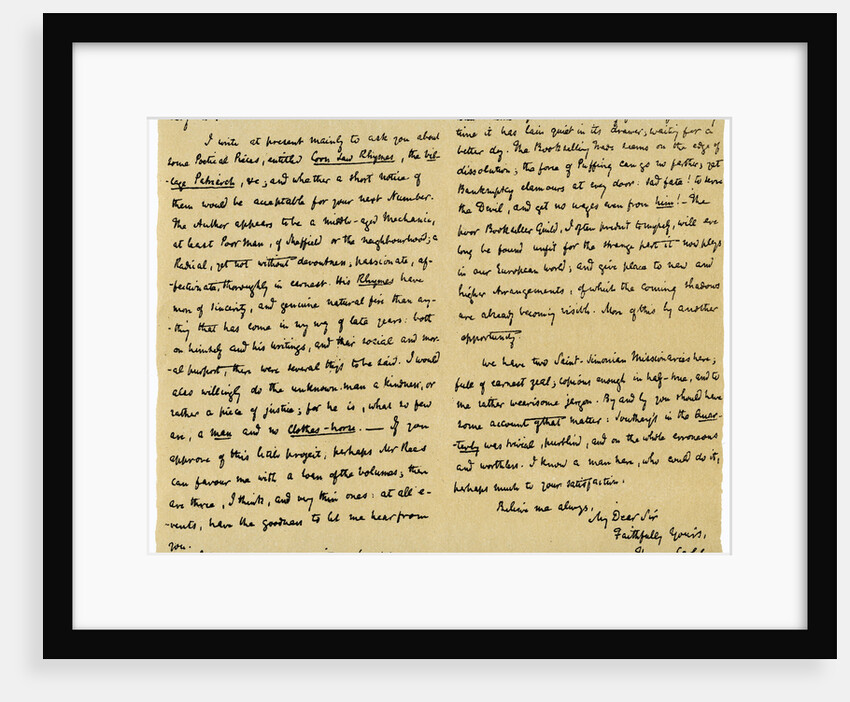 I write at present mainly to ask you about
some Poetical Pieces, entitled Corn Law Rhymes, the Vil-
-lage Patriarch, &c; and whether a short notice of
them would be acceptable for your next Number.
The Author appears to be a middle-aged Mechanic,
at least Poor Man, of Sheffield or the neighbourhood; a
Radical, yet not without devoutness; passionate, af-
-fectionate, thoroughly in earnest. His Rhymes have
more of sincerity, and genuine natural fire than any-
-thing that has come in my way of late years: both
on himself and his writings, and their social and mor-
-al purport, there were several things to be said. I would
also willingly do the unknown man a kindness, or
rather a piece of justice; for he is, what so few
are, a man and no Clothes-horse. — If you
approve of this little project, perhaps Mr Rees
can favour me with a loan of the volumes; there
are three, I think, and very thin ones: at all e-
-vents, have the goodness to let me hear from
you.
time it has lain quiet in its drawer, waiting for a
better day. The Bookselling trade seems on the edge of
dissolution; the force of Puffing can go no farther; yet
Bankruptcy clamours at every door: sad fate! to serve
the Devil, and get no wages even from him! — The
poor Bookseller Guild, I often predict to myself, will ere
long be found unfit for the strange part it now plays
in our European world; and give place to new and
higher arrangements, of which the coming shadows
are already becoming visible. More of this by another
opportunity.
We have two Saint-Simonian Missionaries here;
full of earnest zeal; copious enough in half-true, and to
me rather wearisome jargon. By and by you should have
some account of that matter: Southey's in the Quar-
-terly was trivial, purblind, and on the whole erroneous
and worthless. I know a man here, who could do it,
perhaps much to your satisfaction.
Believe me always,
My Dear Sir
Faithfully Yours,